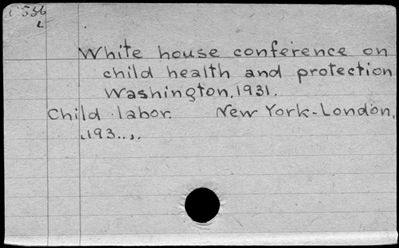 C 556
L
White house conference on
child health and protection
Washington, 1931.
Child labor. New York-London,
,193..,.